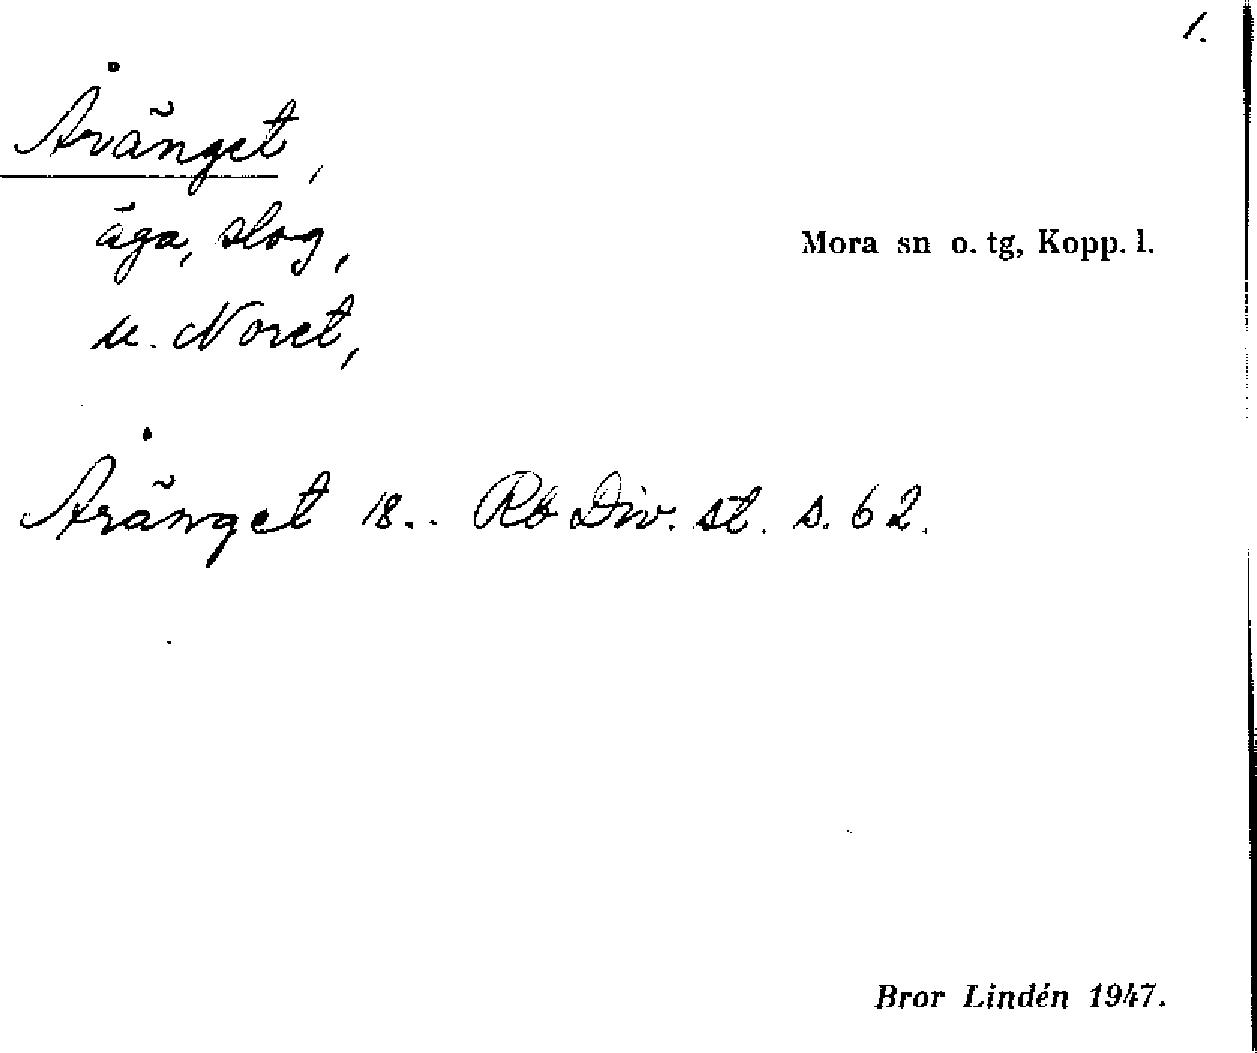 1.
Åränget,
äga, slog,
Mora sn o. tg, Kopp. l.
u. Noret,
Åränget 18.. Rb Div. st. s. 62.
Bror Lindén 1947.